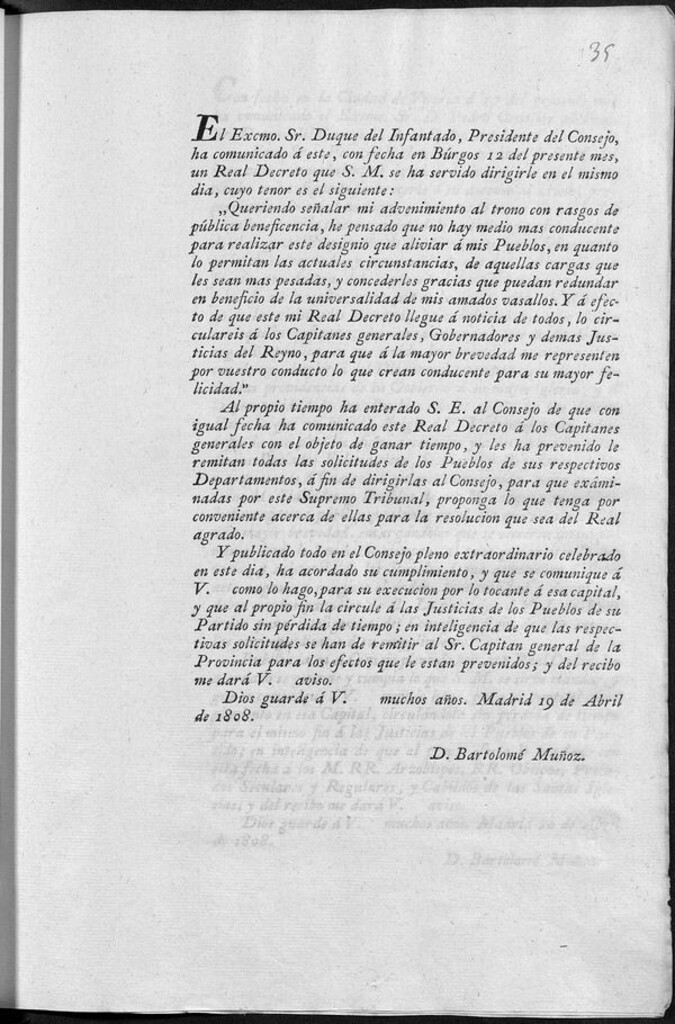 35
El Excmo. Sr. Duque del Infantado, Presidente del Consejo,
ha comunicado á este, con fecha en Búrgos 12 del presente mes,
un Real Decreto que S. M. se ha servido dirigirle en el mismo
dia, cuyo tenor es el siguiente:
„Queriendo señalar mi advenimiento al trono con rasgos de
pública beneficencia, he pensado que no hay medio mas conducente
para realizar este designio que aliviar á mis Pueblos, en quanto
lo permitan las actuales circunstancias, de aquellas cargas que
les sean mas pesadas, y concederles gracias que puedan redundar
en beneficio de la universalidad de mis amados vasallos. Y á efec-
to de que este mi Real Decreto llegue á noticia de todos, lo cir-
culareis á los Capitanes generales, Gobernadores y demas Jus-
ticias del Reyno, para que á la mayor brevedad me representen
por vuestro conducto lo que crean conducente para su mayor fe-
licidad.”
Al propio tiempo ha enterado S. E. al Consejo de que con
igual fecha ha comunicado este Real Decreto á los Capitanes
generales con el objeto de ganar tiempo, y les ha prevenido le
remitan todas las solicitudes de los Pueblos de sus respectivos
Departamentos, á fin de dirigirlas al Consejo, para que exâmi-
nadas por este Supremo Tribunal, proponga lo que tenga por
conveniente acerca de ellas para la resolucion que sea del Real
agrado.
Y publicado todo en el Consejo pleno extraordinario celebrado
en este dia, ha acordado su cumplimiento, y que se comunique á
V. como lo hago, para su execucion por lo tocante á esa capital,
y que al propio fin la circule á las Justicias de los Pueblos de su
Partido sin pérdida de tiempo; en inteligencia de que las respec-
tivas solicitudes se han de remitir al Sr. Capitan general de la
Provincia para los efectos que le estan prevenidos; y del recibo
me dará V. aviso.
Dios guarde á V. muchos años. Madrid 19 de Abril
de 1808.
D. Bartolomé Muñoz.